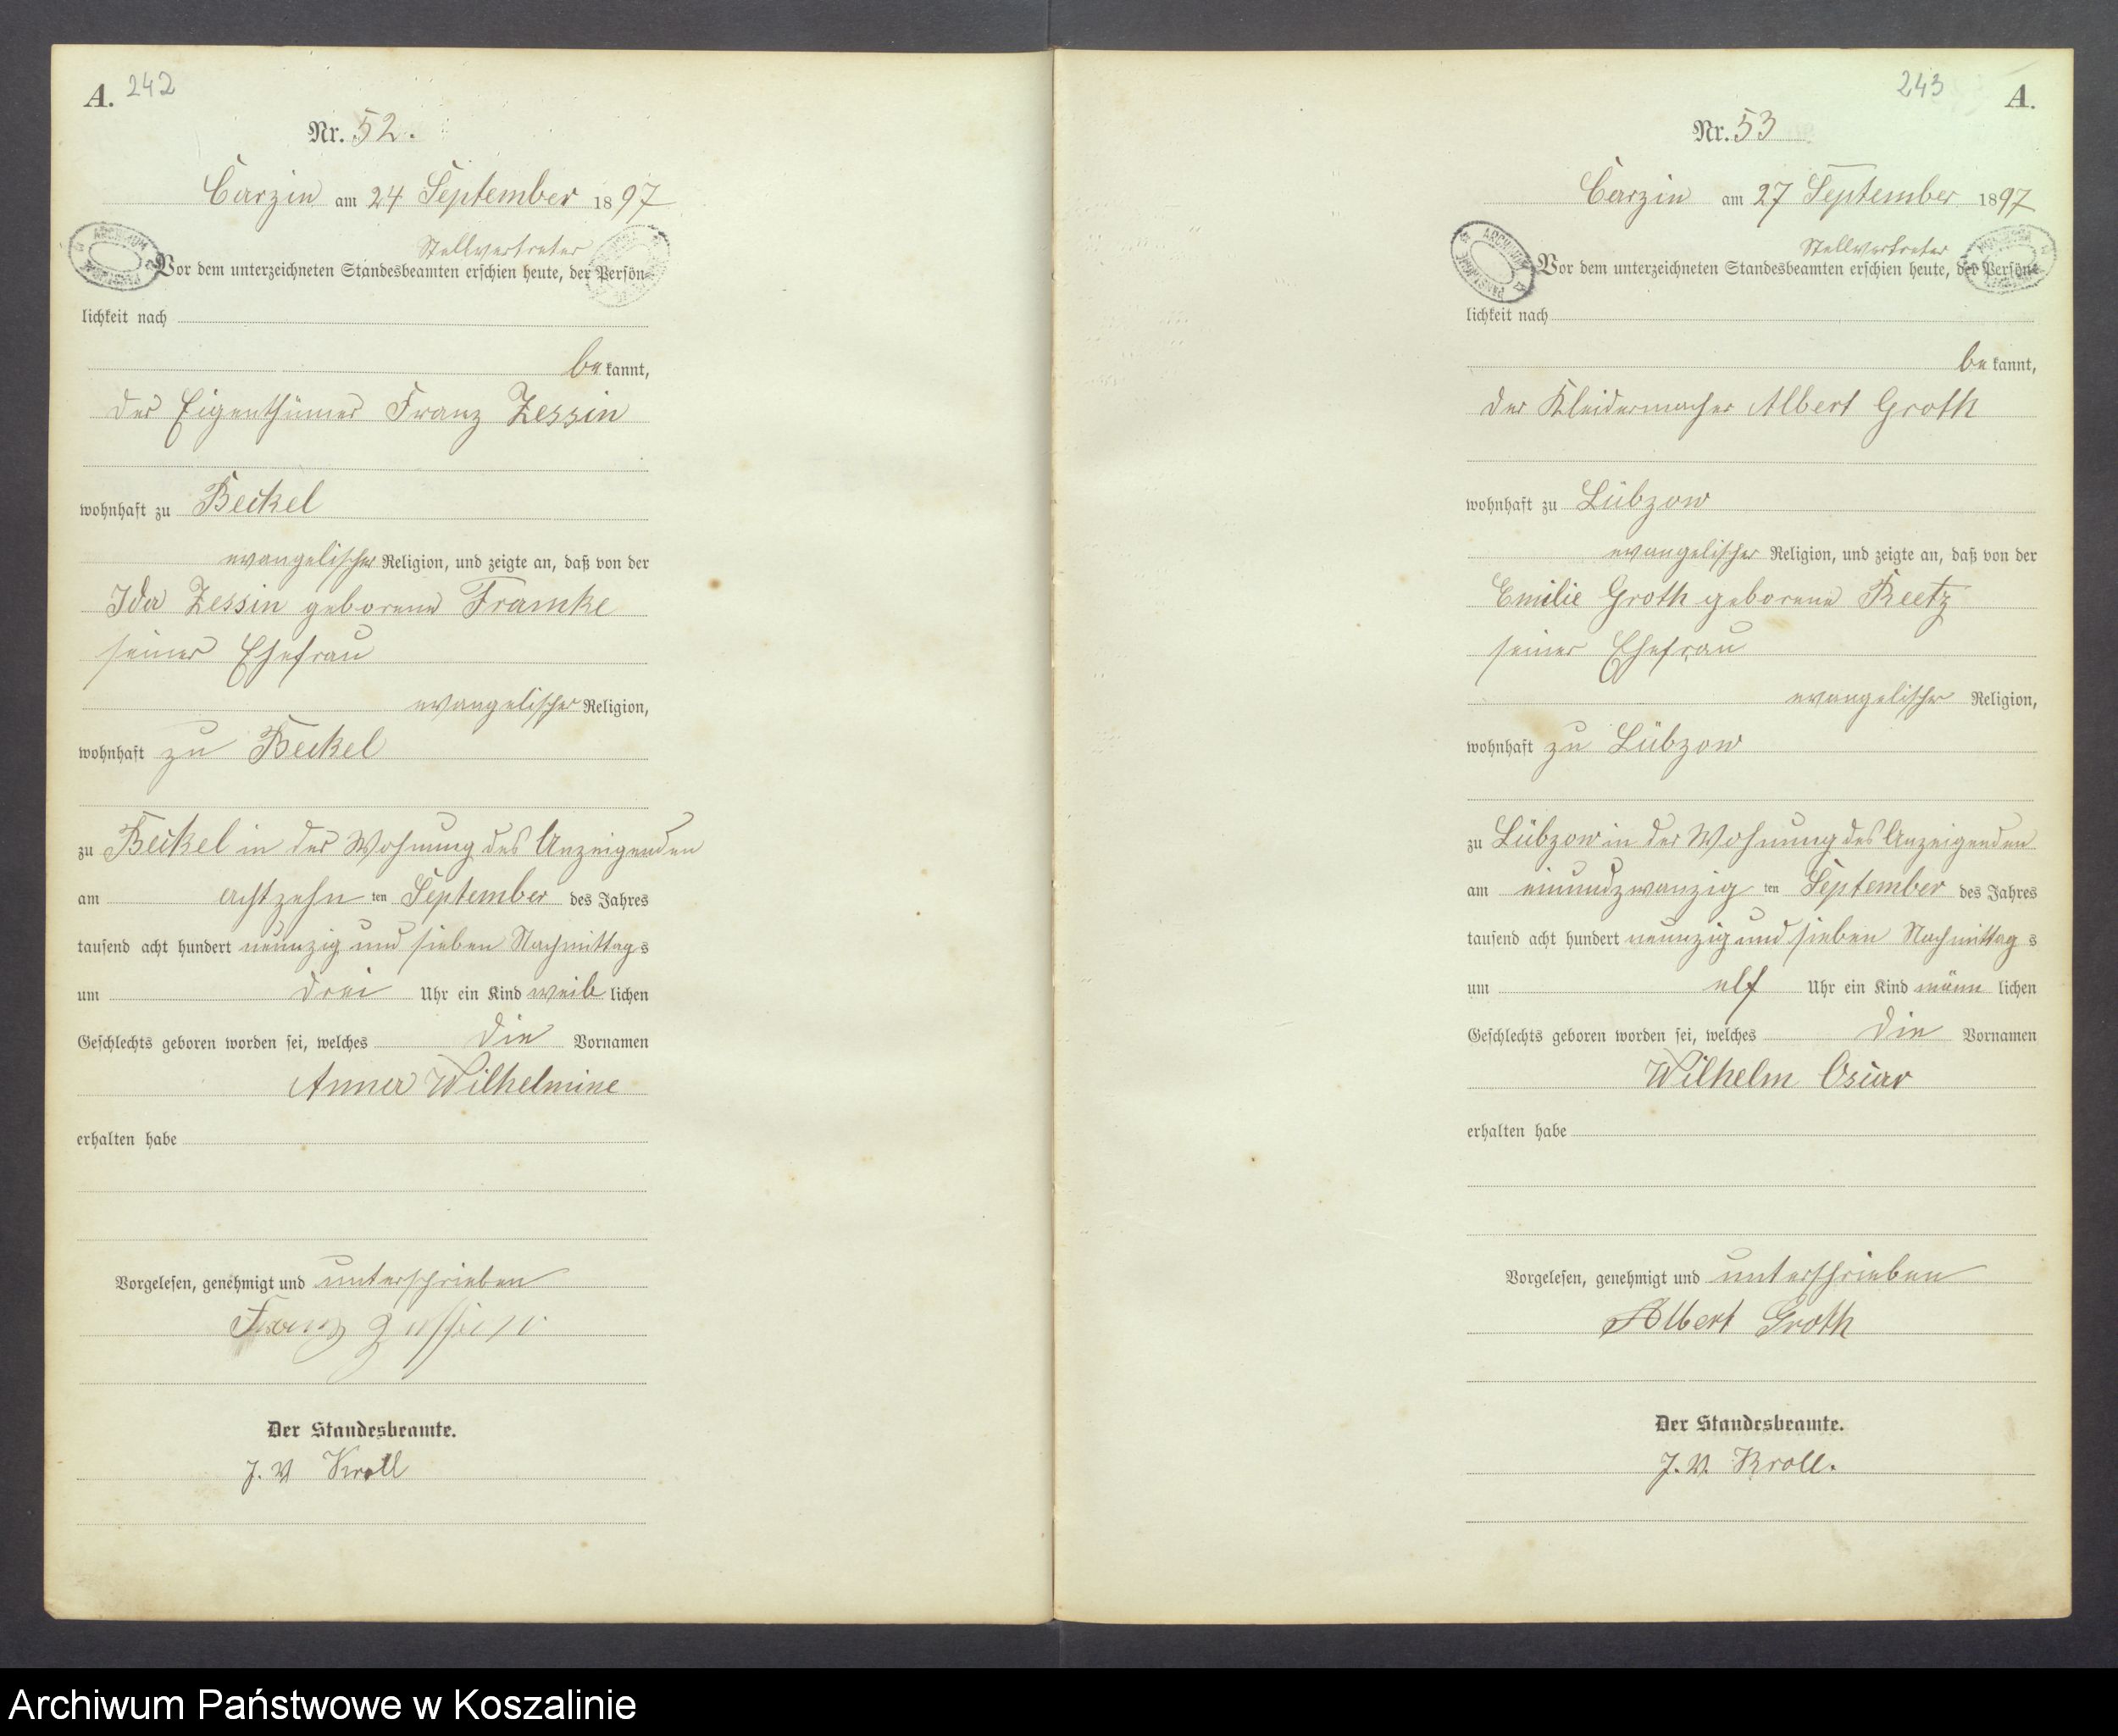 A. 242
Nr. 52.
Carzin am 24 September 1897
Stellvertreter
Vor dem unterzeichneten Standesbeamten erschien heute, der Persön-
lichkeit nach
bekannt,
der Eigenthümer Franz Zessin
wohnhaft zu Beckel
evangelischer Religion, und zeigte an, daß von der
Ida Zessin geborene Framke
seiner Ehefrau
evangelischer Religion,
wohnhaft zu Beckel
zu Beckel in der Wohnung des Anzeigenden
am achtzehn ten September des Jahres
tausend acht hundert neunzig und sieben Nachmittags
um drei Uhr ein Kind weiblichen
Geschlechts geboren worden sei, welches die Vornamen
Anna Wilhelmine
erhalten habe
Vorgelesen, genehmigt und unterschrieben
Franz Zessin
Der Standesbeamte.
J. V Kroll
243 A.
Nr. 53
Carzin am 27 September 1897
Stellvertreter
Vor dem unterzeichneten Standesbeamten erschien heute, der Persön-
lichkeit nach
bekannt,
der Kleidermacher Albert Groth
wohnhaft zu Lübzow
evangelischer Religion, und zeigte an, daß von der
Emilie Groth geborene Reetz
seiner Ehefrau
evangelischer Religion,
wohnhaft zu Lübzow
zu Lübzow in der Wohnung des Anzeigenden
am einundzwanzig ten September des Jahres
tausend acht hundert neunzig und sieben Nachmittags
um elf Uhr ein Kind männlichen
Geschlechts geboren worden sei, welches die Vornamen
Wilhelm Oscar
erhalten habe
Vorgelesen, genehmigt und unterschrieben
Albert Groth
Der Standesbeamte.
J. V. Kroll.
Archiwum Państwowe w Koszalinie